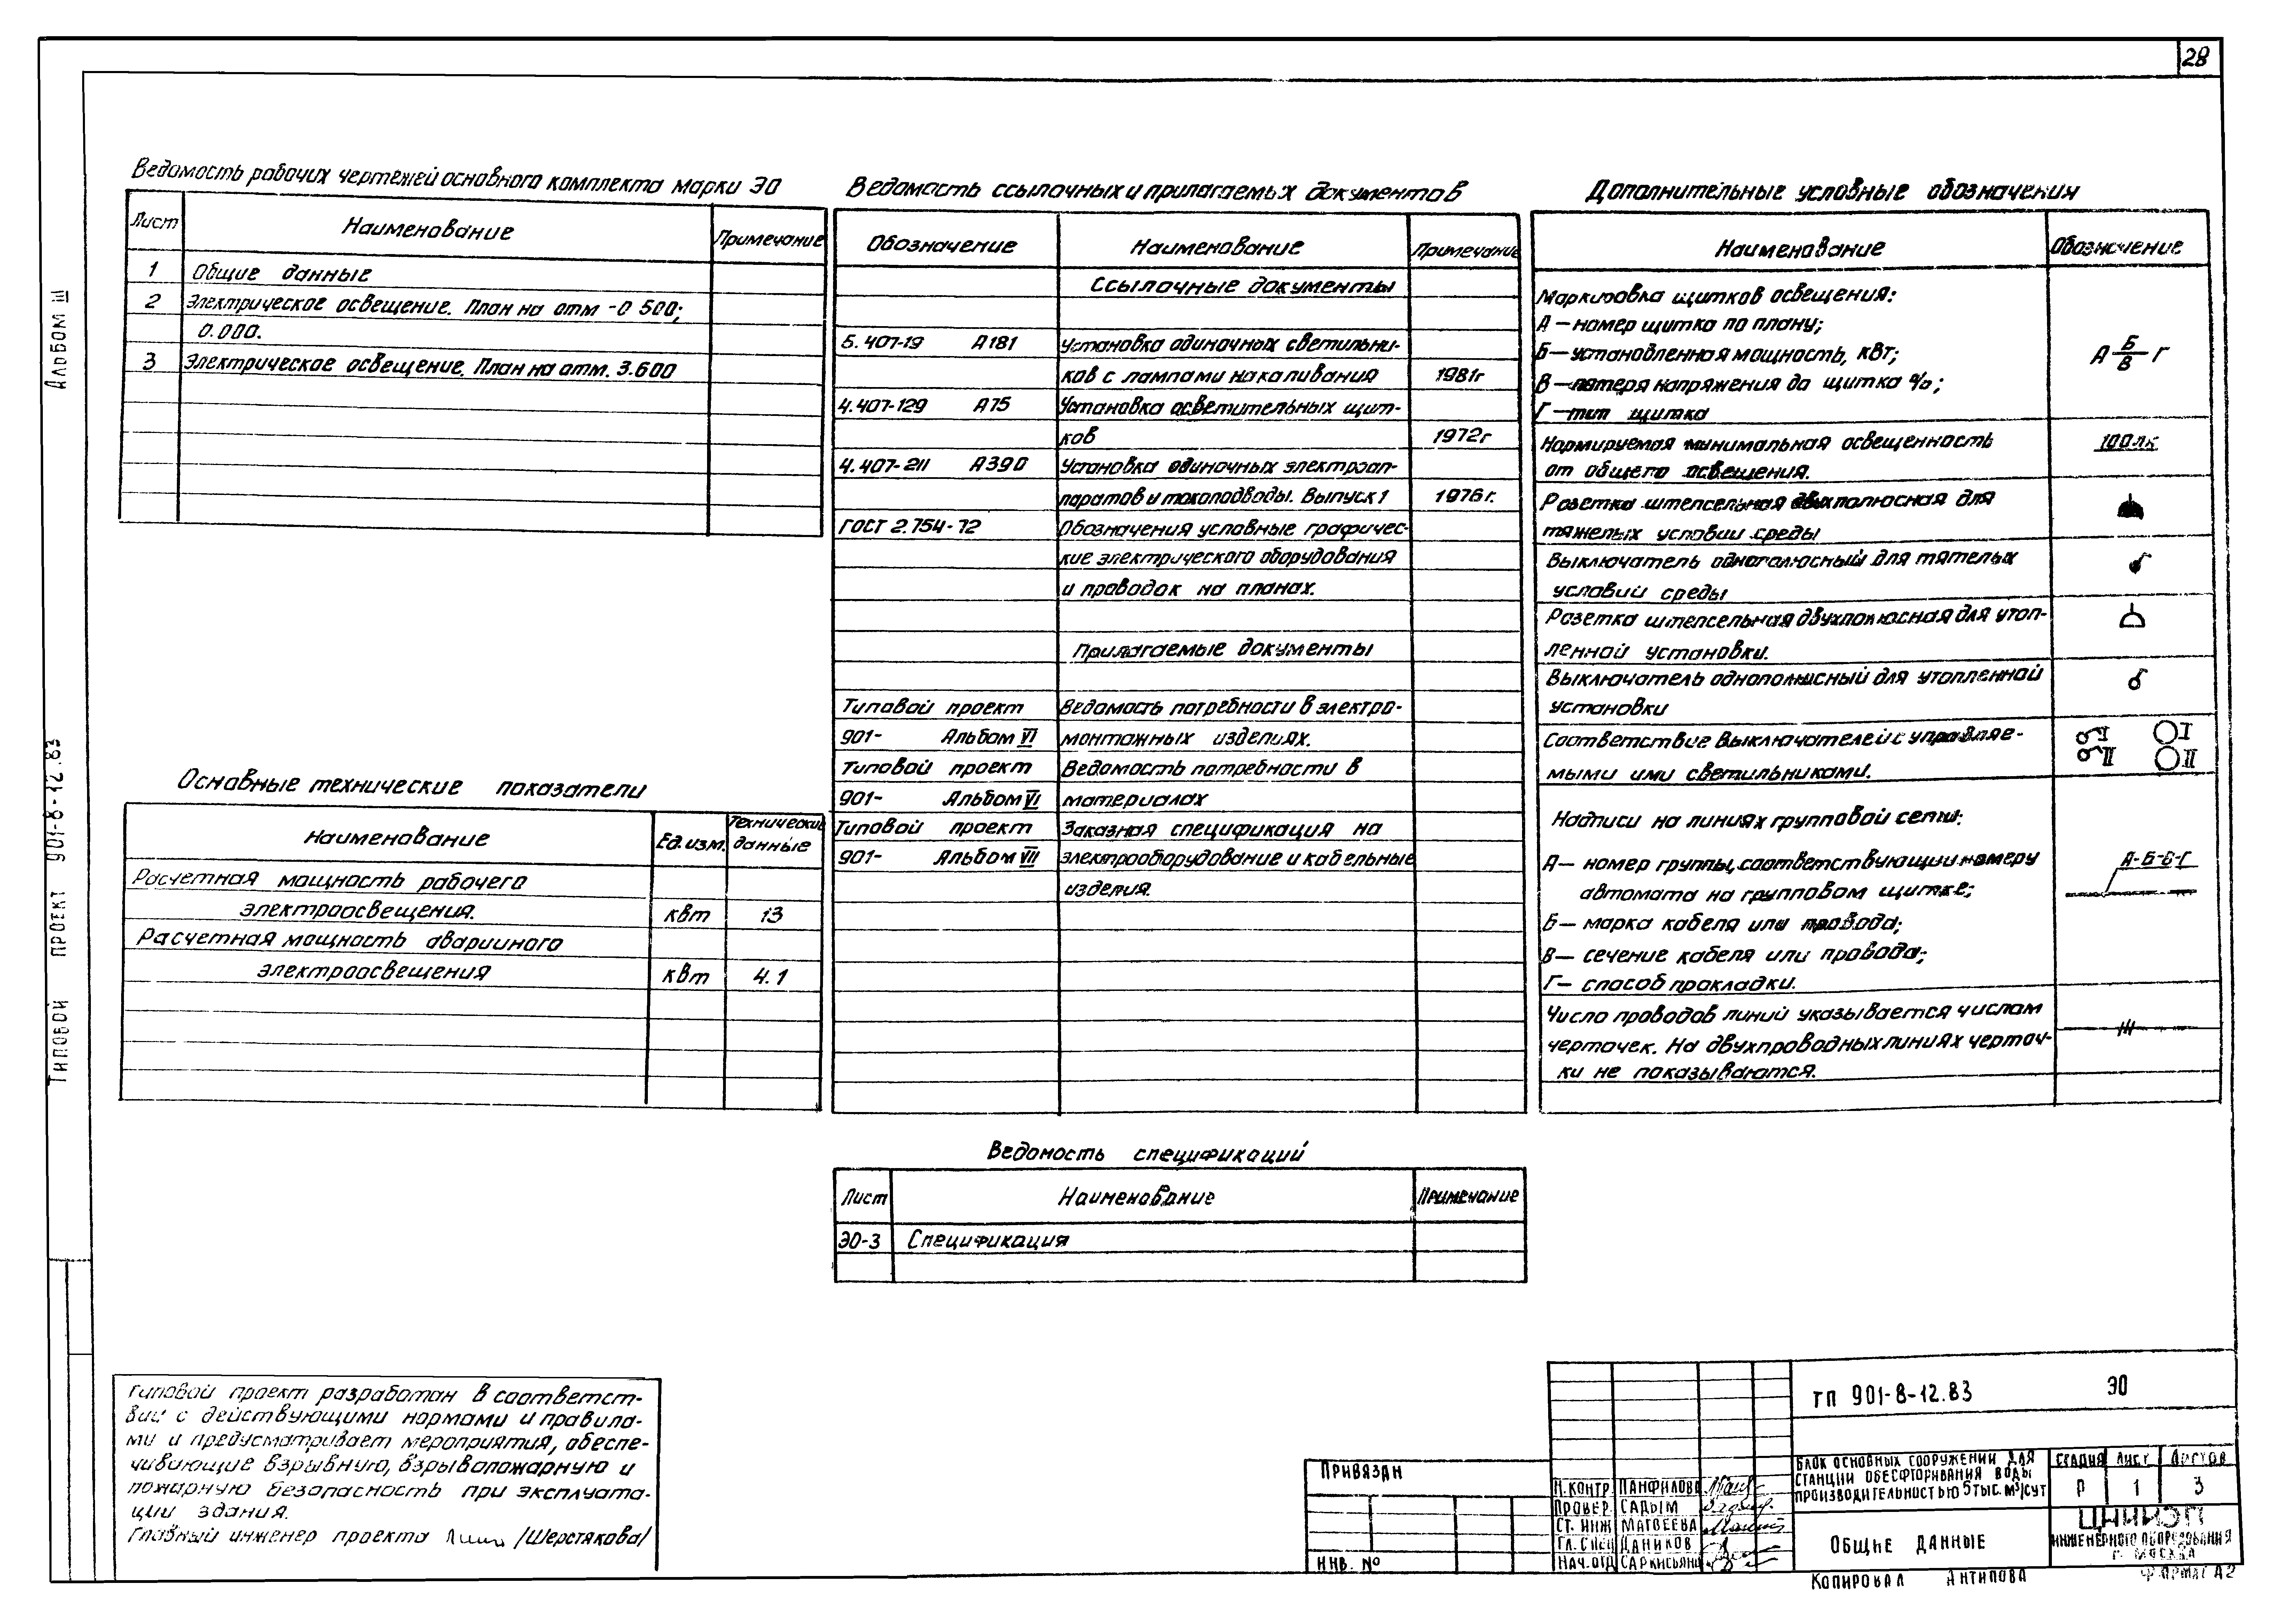 28
Альбом III
Типовой проект 901-8-12.83
Ведомость рабочих чертежей основного комплекта марки ЭО
Лист Наименование Примечание
1 Общие данные
2 Электрическое освещение. План на отм -0 500;
0.000.
3 Электрическое освещение. План на отм. 3.600
Основные технические показатели
Наименование Ед.изм. Технические данные
Расчетная мощность рабочего
электроосвещения. квт 13
Расчетная мощность аварийного
электроосвещения квт 4.1
Ведомость ссылочных и прилагаемых документов
Обозначение Наименование Примечание
Ссылочные документы
5.407-19 А181 Установка одиночных светильни-
ков с лампами накаливания 1981г
4.407-129 А75 Установка осветительных щит-
ков 1972г
4.407-211 А390 Установка одиночных электроап-
паратов и токоподводы. Выпуск 1 1976г.
ГОСТ 2.754-72 Обозначения условные графичес-
кие электрического оборудования
и проводок на планах.
Прилагаемые документы
Типовой проект Ведомость потребности в электро-
901- Альбом VI монтажных изделиях.
Типовой проект Ведомость потребности в
901- Альбом VI материалах
Типовой проект Заказная спецификация на
901- Альбом VII электрооборудование и кабельные
изделия.
Дополнительные условные обозначения
Наименование Обозначение
Маркировка щитков освещения:
А – номер щитка по плану;
Б – установленная мощность, квт;
В – потеря напряжения до щитка %;
Г – тип щитка
А Б/В Г
Нормируемая минимальная освещенность 100лк
от общего освещения.
Розетка штепсельная двухполюсная для
тяжелых условий среды
Выключатель однополюсный для тяжелых
условий среды
Розетка штепсельная двухполюсная для утоп-
ленной установки.
Выключатель однополюсный для утопленной
установки
Соответствие выключателей с управляе- I I
мыми ими светильниками. II II
Надписи на линиях групповой сети:
А – номер группы, соответствующий номеру А-Б-В-Г
автомата на групповом щитке;
Б – марка кабеля или провода;
В – сечение кабеля или провода;
Г – способ прокладки.
Число проводов линий указывается числом
черточек. На двухпроводных линиях черточ-
ки не показываются.
Ведомость спецификаций
Лист Наименование Примечание
ЭО-3 Спецификация
Типовой проект разработан в соответст-
вии с действующими нормами и правила-
ми и предусматривает мероприятия, обеспе-
чивающие взрывную, взрывопожарную и
пожарную безопасность при эксплуата-
ции здания.
Главный инженер проекта /Шерстякова/
Привязан
Инв. №
Н.контр. Панфилова
Провер. Садым
Ст. инж Матвеева
Гл. спец Даников
Нач.отд Саркисьянц
ТП 901-8-12.83 ЭО
Блок основных сооружений для
станции обесфторивания воды
производительностью 5 тыс. м³/сут
Стадия Лист Листов
Р 1 3
Общие данные
ЦНИИЭП
инженерного оборудования
г. Москва
Копировал Антипова Формат А2